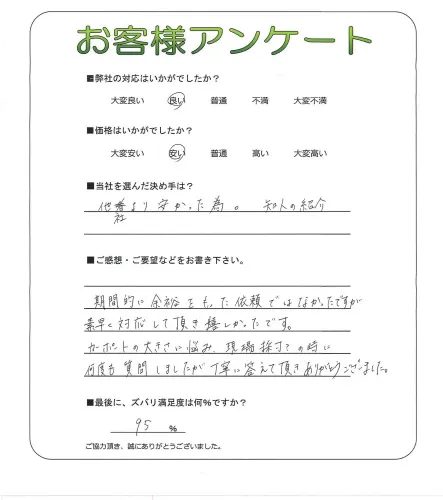 お客様アンケート
■弊社の対応はいかがでしたか？
大変良い 良い 普通 不満 大変不満
■価格はいかがでしたか？
大変安い 安い 普通 高い 大変高い
■当社を選んだ決め手は？
他社より安かった為。 知人の紹介
■ご感想・ご要望などをお書き下さい。
期間的に余裕をもった依頼ではなかったですが
素早く対応して頂き嬉しかったです。
カーポートの大きさに悩み、現場採寸の時に
何度も質問しましたが丁寧に答えて頂きありがとうございました。
■最後に、ズバリ満足度は何%ですか？
95 %
ご協力頂き、誠にありがとうございました。